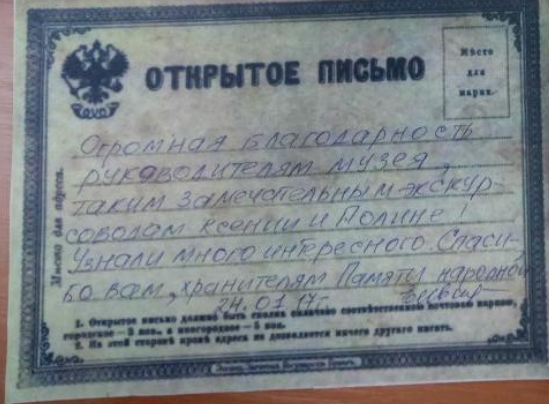 ОТКРЫТОЕ ПИСЬМО
Мѣсто
для
марки.
Мѣсто для адреса.
Огромная благодарность
руководителям музея,
таким замечательным экскур-
соводам Ксении и Полине!
Узнали много интересного. Спаси-
бо вам, хранителям Памяти народной
24.01.17г.
1. Открытое письмо должно быть сполна оплачено соотвѣтственною почтовою маркою,
городское – 3 коп., а иногороднее – 5 коп.
2. На этой сторонѣ кромѣ адреса не дозволяется ничего другаго писать.